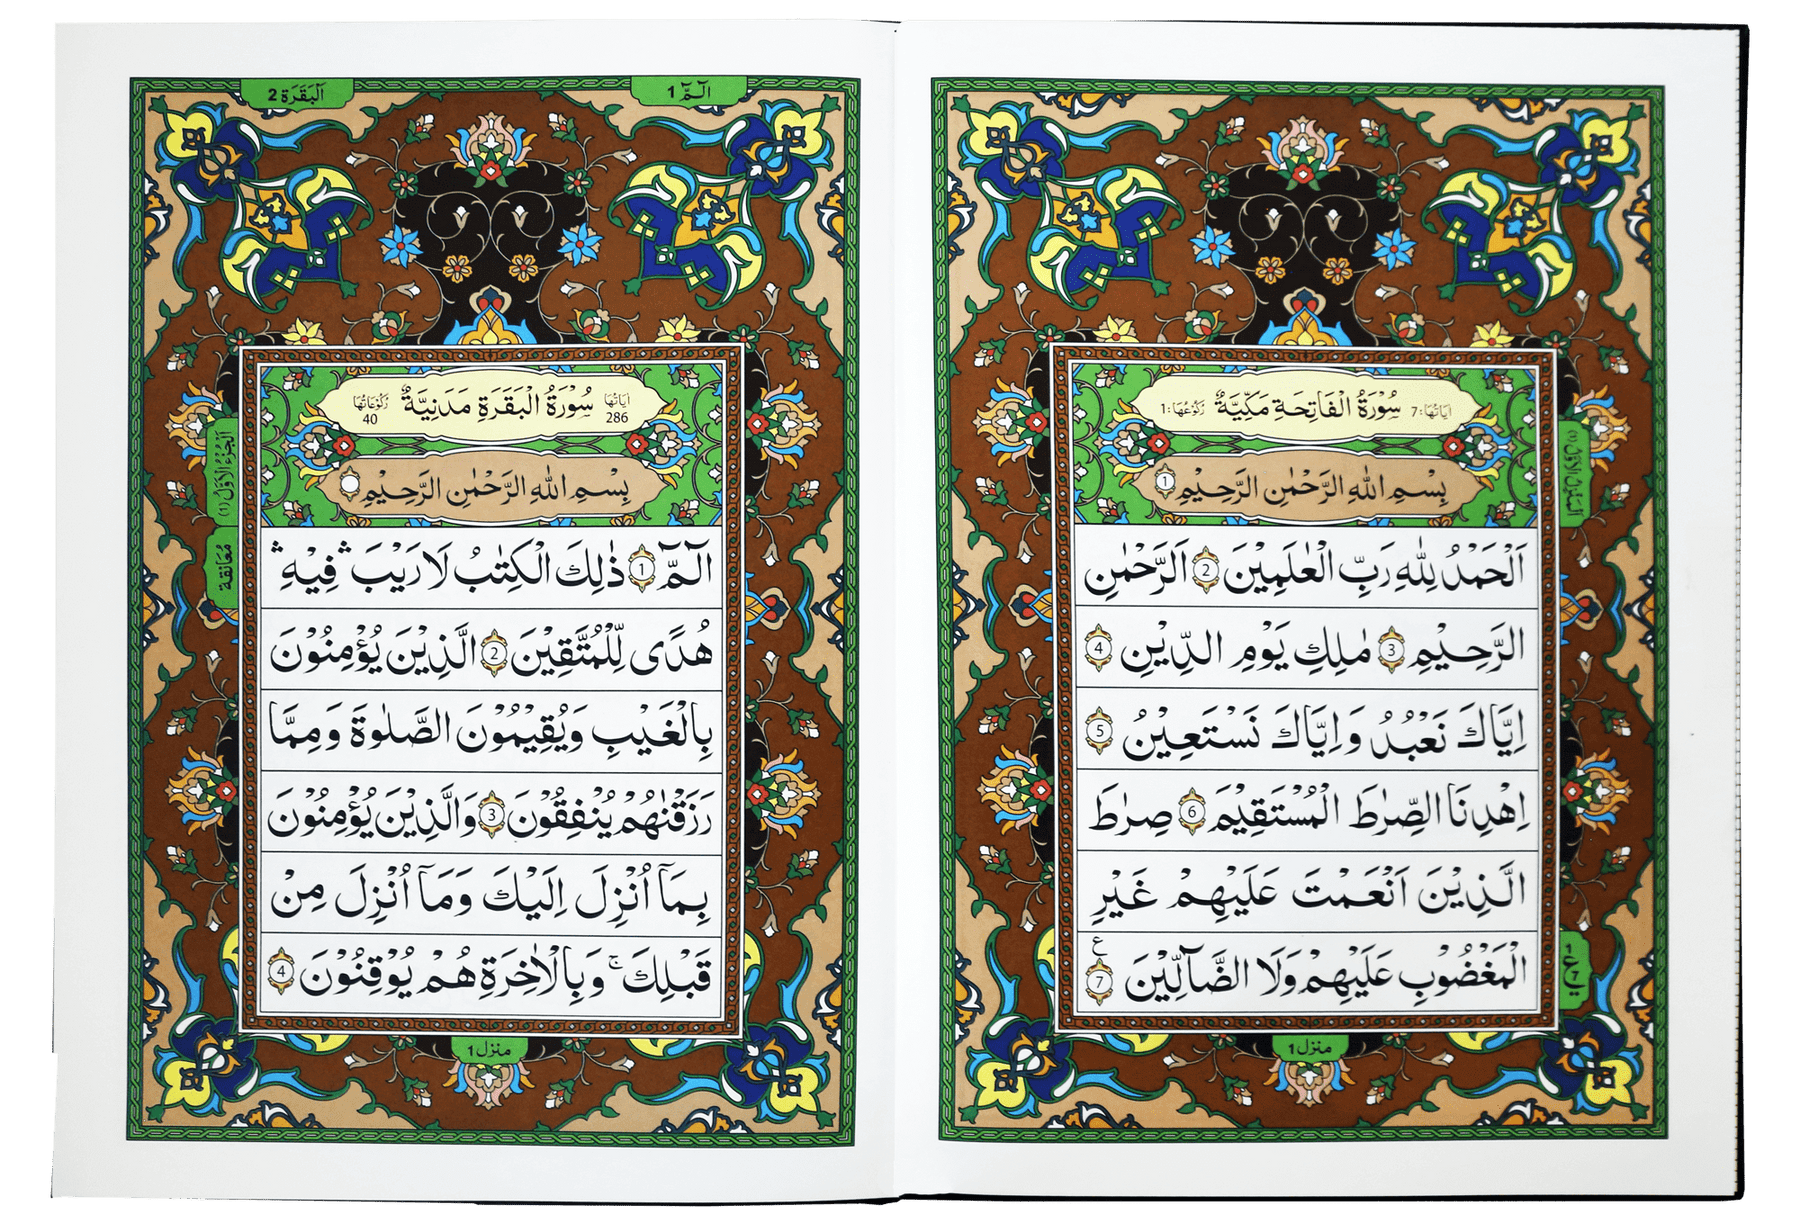 اٰيَاتُهَا: 7 سُوْرَةُ الْفَاتِحَةِ مَكِّيَّةٌ رُكُوْعُهَا: 1
بِسْمِ اللّٰهِ الرَّحْمٰنِ الرَّحِيْمِ 1
اَلْحَمْدُ لِلّٰهِ رَبِّ الْعٰلَمِيْنَ 2 الرَّحْمٰنِ
الرَّحِيْمِ 3 مٰلِكِ يَوْمِ الدِّيْنِ 4
اِيَّاكَ نَعْبُدُ وَاِيَّاكَ نَسْتَعِيْنُ 5
اِهْدِنَا الصِّرٰطَ الْمُسْتَقِيْمَ 6 صِرٰطَ
الَّذِيْنَ اَنْعَمْتَ عَلَيْهِمْ غَيْرِ
الْمَغْضُوْبِ عَلَيْهِمْ وَلَا الضَّآلِّيْنَ 7 ع
منزل 1
الٓمّٓ 1
اَلْبَقَرَة 2
اٰيَاتُهَا 286 سُوْرَةُ الْبَقَرَةِ مَدَنِيَّةٌ رُكُوْعَاتُهَا 40
بِسْمِ اللّٰهِ الرَّحْمٰنِ الرَّحِيْمِ
اَلْجُزْءُ الْاَوَّلُ (1)
مُعَانَقَة
الٓمّٓ 1 ذٰلِكَ الْكِتٰبُ لَا رَيْبَ ۛ فِيْهِ ۛ
هُدًى لِّلْمُتَّقِيْنَ 2 الَّذِيْنَ يُؤْمِنُوْنَ
بِالْغَيْبِ وَيُقِيْمُوْنَ الصَّلٰوةَ وَمِمَّا
رَزَقْنٰهُمْ يُنْفِقُوْنَ 3 وَالَّذِيْنَ يُؤْمِنُوْنَ
بِمَآ اُنْزِلَ اِلَيْكَ وَمَآ اُنْزِلَ مِنْ
قَبْلِكَ ۚ وَبِالْاٰخِرَةِ هُمْ يُوْقِنُوْنَ 4
منزل 1